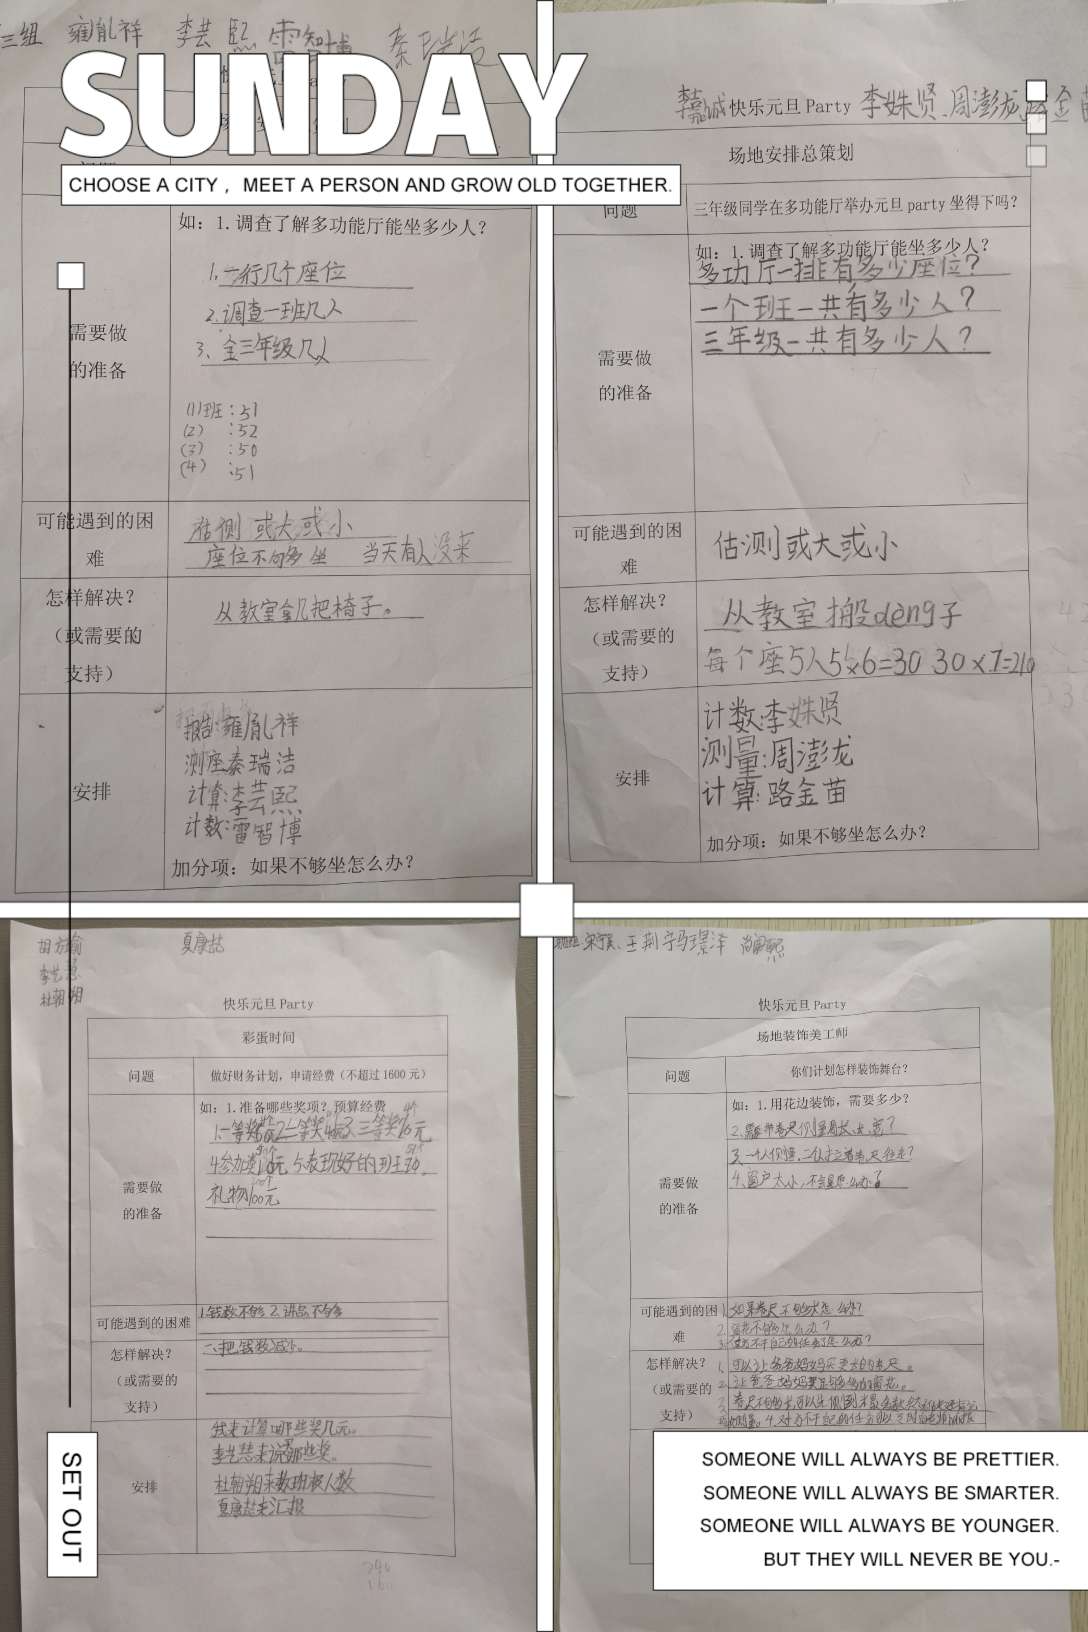 三组 雍胤祥 李芸熙 雷智博 秦瑞洁
SUNDAY
CHOOSE A CITY, MEET A PERSON AND GROW OLD TOGETHER.
如：1.调查了解多功能厅能坐多少人？
1.一行几个座位
2.调查一班几人
3、全三年级几人
需要做
的准备
(1)班：51
(2) ：52
(3) ：50
(4) ：51
可能遇到的困
难
估测 或大或小
座位不够多坐 当天有人没来
怎样解决？
（或需要的
支持）
从教室拿几把椅子。
安排
报告：雍胤祥
测座秦瑞洁
计算：李芸熙
计数：雷智博
加分项：如果不够坐怎么办？
李嘉诚 快乐元旦Party 李姝贤、周澎龙 路金苗
场地安排总策划
问题
三年级同学在多功能厅举办元旦party坐得下吗？
如：1.调查了解多功能厅能坐多少人？
多功厅一排有多少座位？
一个班一共有多少人？
三年级一共有多少人？
需要做
的准备
可能遇到的困
难
估测或大或小
怎样解决？
（或需要的
支持）
从教室搬deng子
每个座5人5×6=30 30×7=210
安排
计数：李姝贤
测量：周澎龙
计算：路金苗
加分项：如果不够坐怎么办？
夏康喆
杜朝朔
快乐元旦Party
彩蛋时间
问题
做好财务计划，申请经费（不超过1600元）
如：1.准备哪些奖项？预算经费
需要做
的准备
礼物100元
可能遇到的困难
1.钱数不够 2.讲品不够多
怎样解决？
（或需要的
支持）
二、把钱数减少。
安排
我来计算哪些奖几元。
李艺慧来说那些奖。
杜朝朔来数班级人数
夏康喆来汇报
快乐元旦Party
场地装饰美工师
问题
你们计划怎样装饰舞台？
如：1.用花边装饰，需要多少？
需要做
的准备
可能遇到的困
难
1.如果卷尺不够长怎么办？
怎样解决？
（或需要的
支持）
1.可以让爸爸妈妈买更大的卷尺。
SET OUT
SOMEONE WILL ALWAYS BE PRETTIER.
SOMEONE WILL ALWAYS BE SMARTER.
SOMEONE WILL ALWAYS BE YOUNGER.
BUT THEY WILL NEVER BE YOU.-